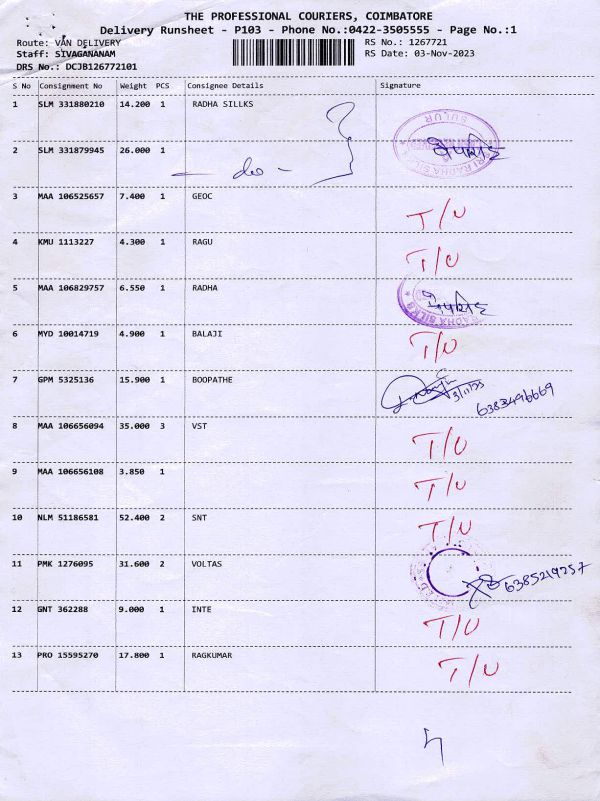 THE PROFESSIONAL COURIERS, COIMBATORE
Delivery Runsheet - P103 - Phone No.:0422-3505555 - Page No.:1
Route: VAN DELIVERY RS No.: 1267721
Staff: SIVAGANANAM RS Date: 03-Nov-2023
DRS No.: DCJB126772101
S No Consignment No Weight PCS Consignee Details Signature
1 SLM 331880210 14.200 1 RADHA SILLKS
SULUR
2 SLM 331879945 26.000 1 — do —
3 MAA 106525657 7.400 1 GEOC T/U
4 KMU 1113227 4.300 1 RAGU T/U
5 MAA 106829757 6.550 1 RADHA
RADHA SILKS
6 MYD 10014719 4.900 1 BALAJI T/U
7 GPM 5325136 15.900 1 BOOPATHE 3/11/23 6383496669
8 MAA 106656094 35.000 3 VST T/U
9 MAA 106656108 3.850 1 T/U
10 NLM 51186581 52.400 2 SNT T/U
11 PMK 1276095 31.600 2 VOLTAS 6385219257
12 GNT 362288 9.000 1 INTE T/U
13 PRO 15595270 17.800 1 RAGKUMAR T/U